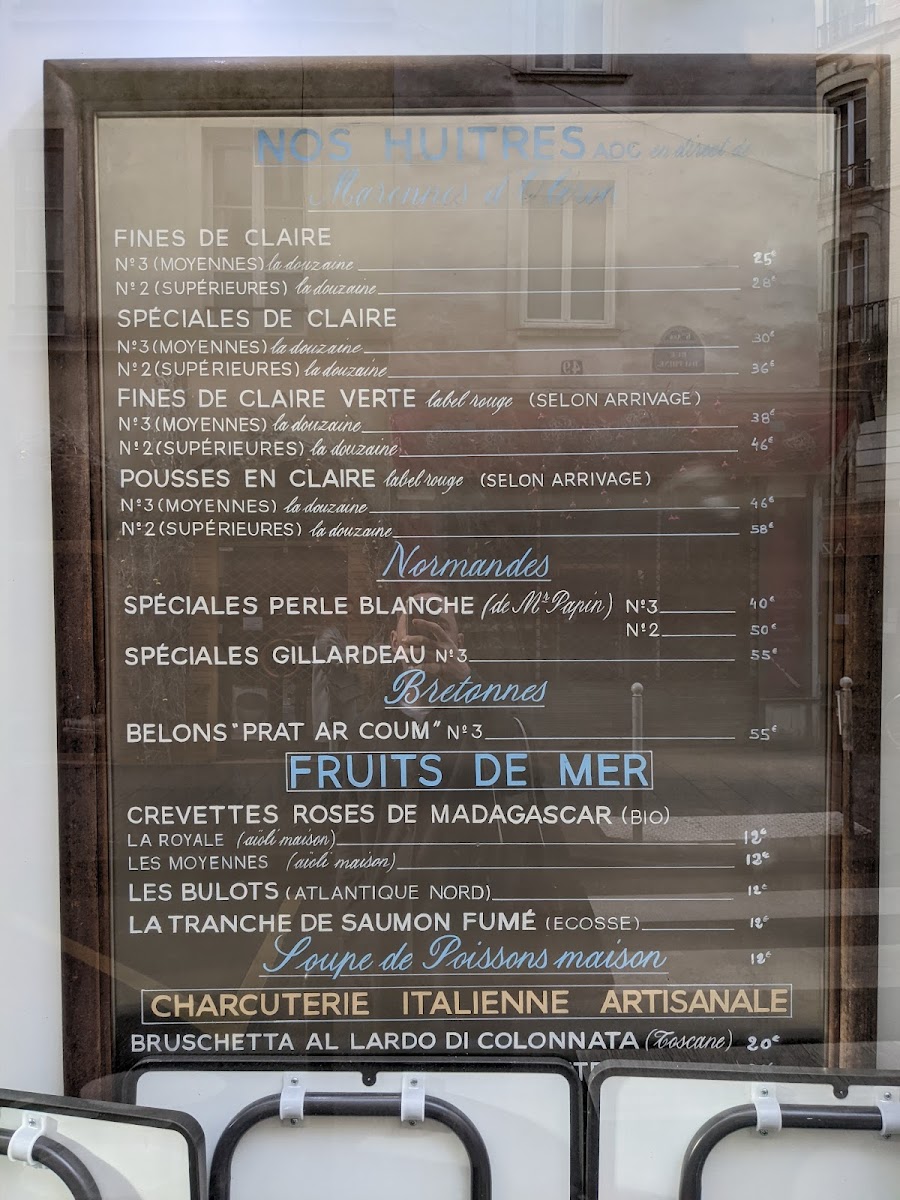 NOS HUITRES AOC en direct de
Marennes d'Oléron
FINES DE CLAIRE
Nº3 (MOYENNES) la douzaine 25€
Nº2 (SUPÉRIEURES) la douzaine 28€
SPÉCIALES DE CLAIRE
Nº3 (MOYENNES) la douzaine 30€
Nº2 (SUPÉRIEURES) la douzaine 36€
FINES DE CLAIRE VERTE label rouge (SELON ARRIVAGE)
Nº3 (MOYENNES) la douzaine 38€
Nº2 (SUPÉRIEURES) la douzaine 46€
POUSSES EN CLAIRE label rouge (SELON ARRIVAGE)
Nº3 (MOYENNES) la douzaine 46€
Nº2 (SUPÉRIEURES) la douzaine 58€
Normandes
SPÉCIALES PERLE BLANCHE (de Mr Papin) Nº3 40€
Nº2 50€
SPÉCIALES GILLARDEAU Nº3 55€
Bretonnes
BELONS "PRAT AR COUM" Nº3 55€
FRUITS DE MER
CREVETTES ROSES DE MADAGASCAR (BIO)
LA ROYALE (aïoli maison) 12€
LES MOYENNES (aïoli maison) 12€
LES BULOTS (ATLANTIQUE NORD) 12€
LA TRANCHE DE SAUMON FUMÉ (ECOSSE) 12€
Soupe de Poissons maison 12€
CHARCUTERIE ITALIENNE ARTISANALE
BRUSCHETTA AL LARDO DI COLONNATA (Toscane) 20€